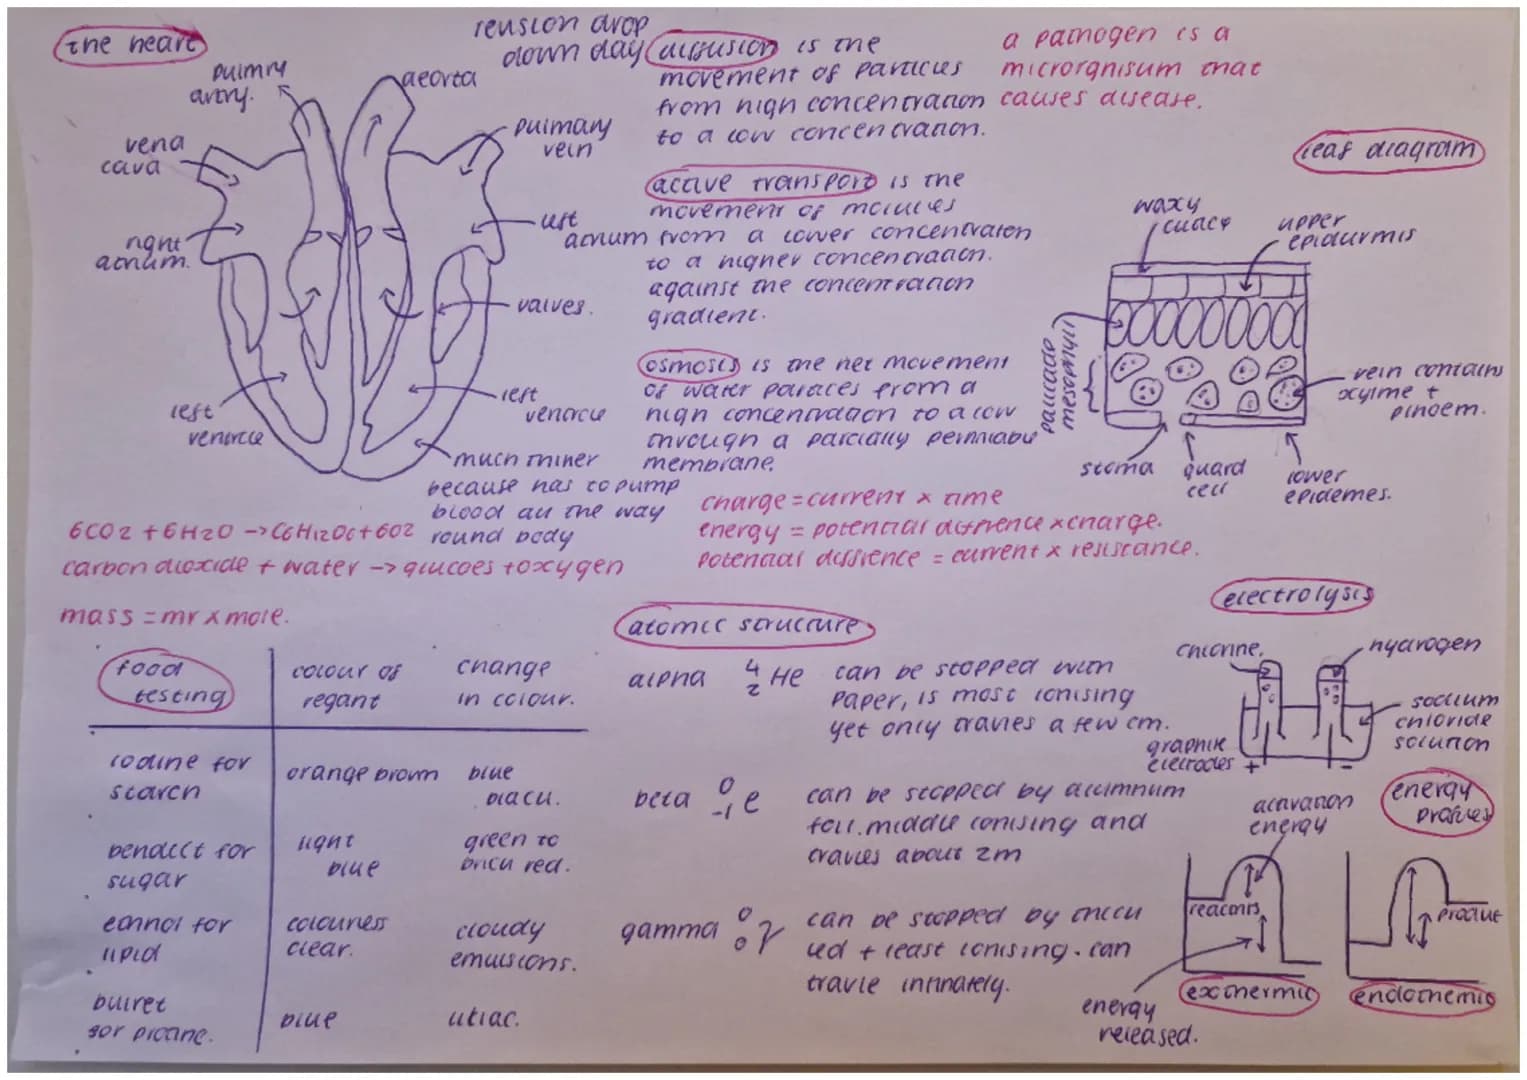 the heart
revision drop
down day
pulmry
artry.
aeorta
vena
cava
pulmary
vein
right
atrium.
left
atrium
valves.
left
ventricle
left
ventricle
much thiner
because has to pump
blood all the way
round body
diffusion is the
movement of particles
from high concentration
to a low concentration.
active transport is the
movement of molcules
from a lower concentration
to a higher concentration.
against the concentration
gradient.
osmosis is the net movement
of water particles from a
high concentration to a low
through a partially permiable
membrane.
a pathogen is a
microrgnisum that
causes disease.
leaf diagram
waxy
upper
epidurmis
mesophyll
vein contains
xylme +
phloem.
stoma
guard
cell
lower
epidemes.
charge = current × time
energy = potential diffrence × charge.
potential diffrence = current × resistance.
6CO2 + 6H2O -> C6H12O6 + 6O2
carbon dioxide + water -> glucoes + oxygen
mass = mr × mole.
food
testing
colour of
regant
change
in colour.
iodine for
starch
orange brown
blue
black.
benedict for
sugar
light
blue
green to
brick red.
ethnol for
lipid
colourless
clear.
cloudy
emulsions.
buiret
for protine.
blue
lilac.
atomic structure
alpha 4 2 He can be stopped with
paper, is most ionising
yet only travles a few cm.
beta 0 -1 e can be stopped by alumnum
foil. middle ionising and
travles about 2m
gamma 0 0 γ can be stopped by thick
led + least ionising. can
travle infinately.
electrolysis
chlorine.
hydrogen
sodium
chloride
solution
graphite
electrodes + -
energy
profiles
activation
energy
reactnts
product
energy
released.
exothermic
endothemic